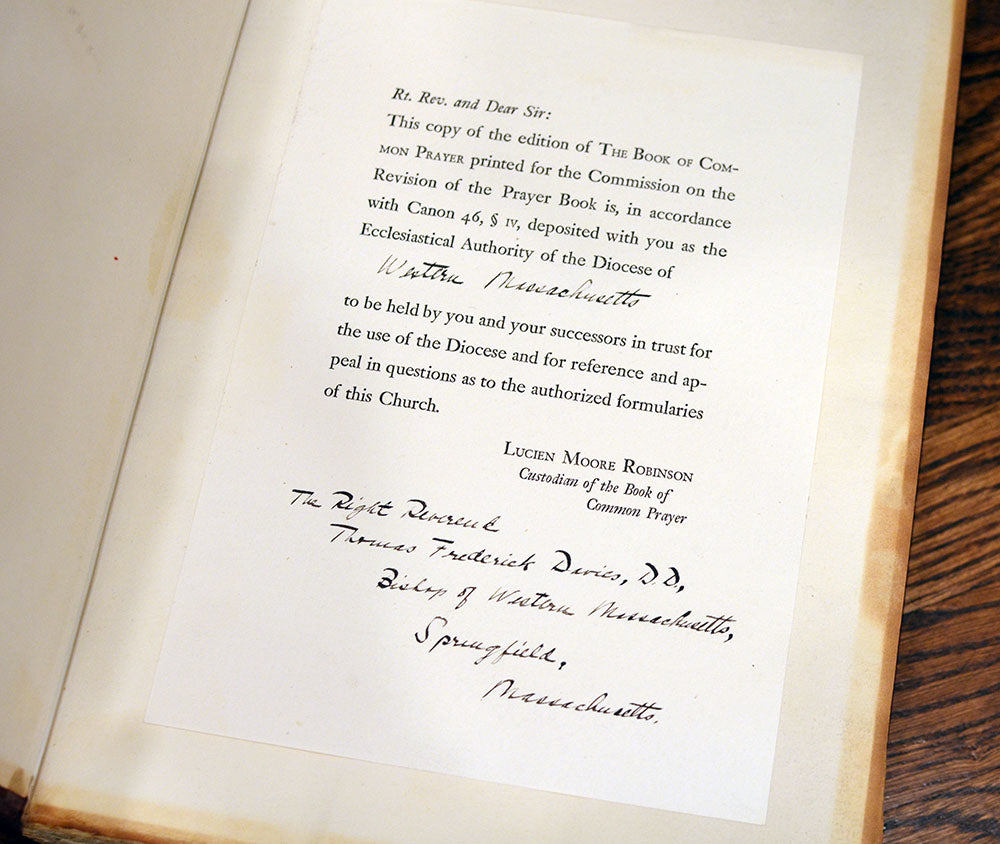 Rt. Rev. and Dear Sir:
This copy of the edition of THE BOOK OF COM-
MON PRAYER printed for the Commission on the
Revision of the Prayer Book is, in accordance
with Canon 46, § IV, deposited with you as the
Ecclesiastical Authority of the Diocese of
Western Massachusetts
to be held by you and your successors in trust for
the use of the Diocese and for reference and ap-
peal in questions as to the authorized formularies
of this Church.
LUCIEN MOORE ROBINSON
Custodian of the Book of
Common Prayer
The Right Reverend
Thomas Frederick Davies, D.D.,
Bishop of Western Massachusetts,
Springfield,
Massachusetts.